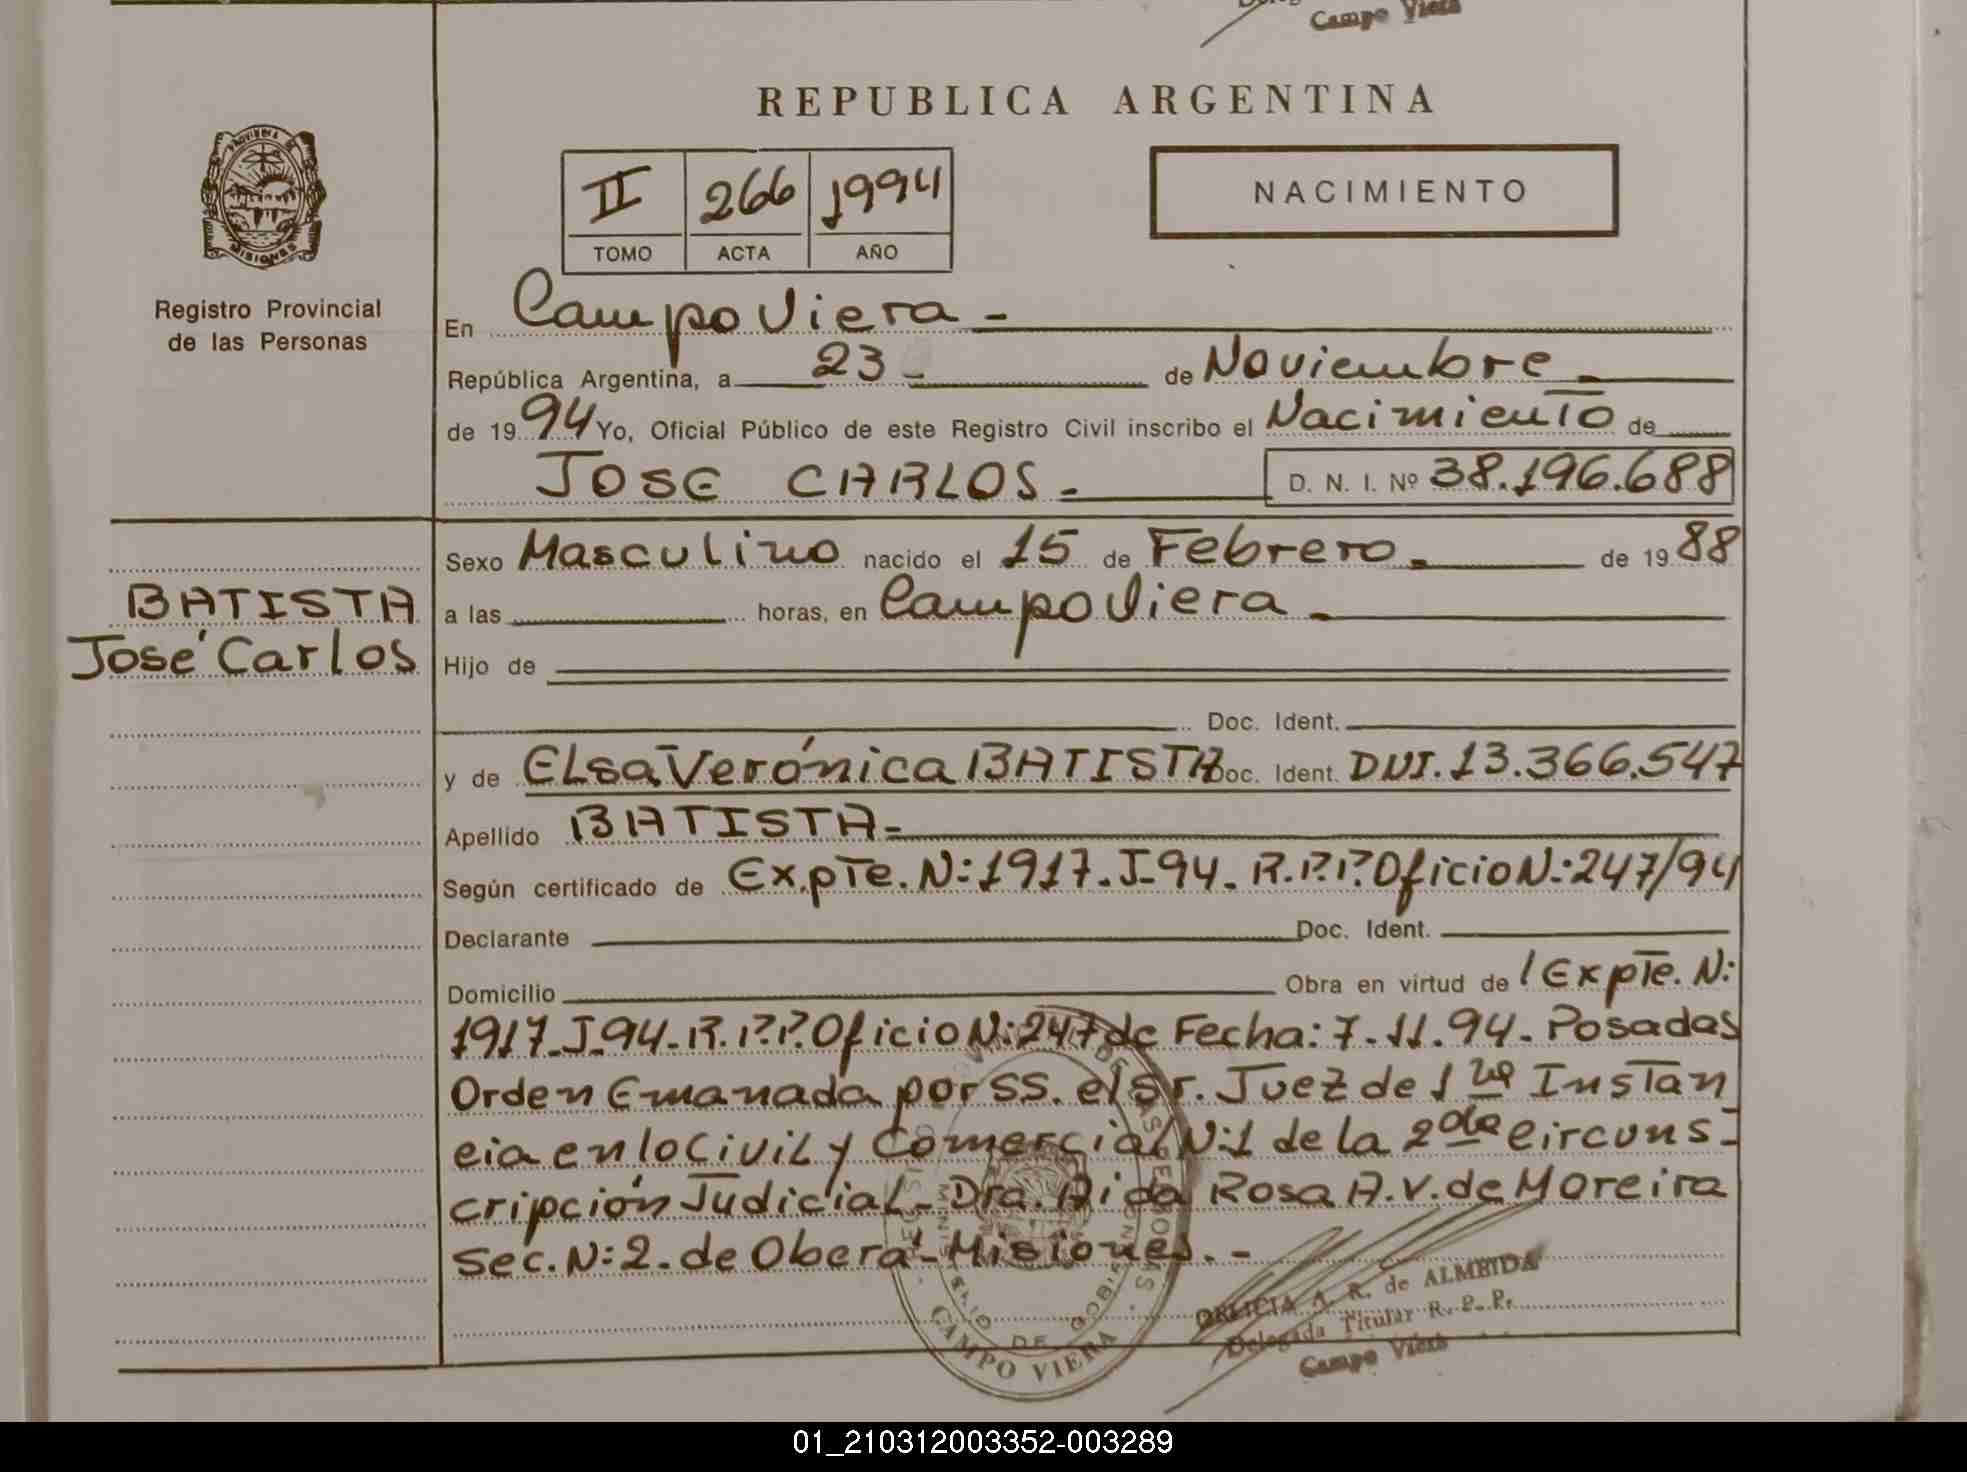 Campo Viera
REPUBLICA ARGENTINA
II 266 1994
TOMO ACTA AÑO
NACIMIENTO
PROVINCIA DE
MISIONES
Registro Provincial
de las Personas
En Campo Viera -
República Argentina, a 23 - de Noviembre -
de 1994 Yo, Oficial Público de este Registro Civil inscribo el Nacimiento de
JOSE CARLOS - D. N. I. Nº 38.196.688
Sexo Masculino nacido el 15 de Febrero - de 1988
BATISTA
José Carlos
a las horas, en Campo Viera -
Hijo de
Doc. Ident.
y de Elsa Verónica BATISTA Doc. Ident. DNI. 13.366.547
Apellido BATISTA -
Según certificado de Expte. N: 1917-J-94- R.P.P. Oficio N: 247/94
Declarante Doc. Ident.
Domicilio Obra en virtud de / Expte. N:
1917-J-94-R.P.P. Oficio N: 247 de Fecha: 7-11.94- Posadas
Orden Emanada por SS. el Sr. Juez de 1ra Instan
cia en lo Civil y Comercial N:1 de la 2da circuns-
cripción Judicial- Dra. Aida Rosa A.V. de Moreira
Sec. N:2. de Oberá- Misiones. -
CAMPO VIERA
DELICIA A. R. de ALMEIDA
Delegada Titular R. P. P.
Campo Viera
01_210312003352-003289